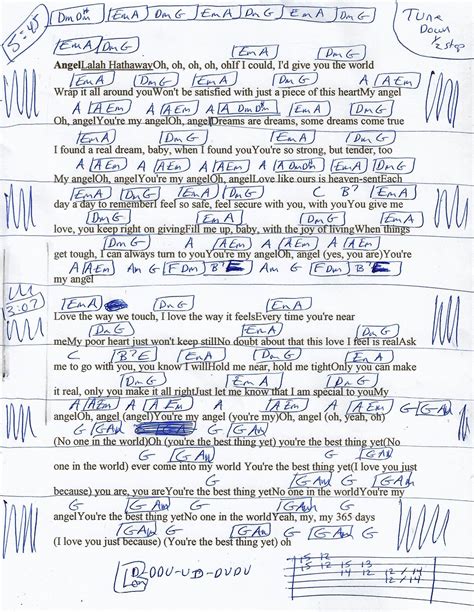 5:45 Dm Dm EmA DmG EmA DmG EmA DmG
Tune Down 1/2 step
EmA DmG EmA DmG
AngelLalah HathawayOh, oh, oh, oh, ohIf I could, I'd give you the world
EmA DmG EmA
Wrap it all around youWon't be satisfied with just a piece of this heartMy angel
A AEm A AEm A Dm Dm EmA
Oh, angelYou're my angelOh, angelDreams are dreams, some dreams come true
DmG EmA DmG
I found a real dream, baby, when I found youYou're so strong, but tender, too
A AEm A AEm A EmA
My angelOh, angelYou're my angelOh, angelLove like ours is heaven-sentEach
DmG EmA DmG C B7 EmA
day a day to rememberI feel so safe, feel secure with you, with youYou give me
DmG EmA DmG
love, you keep right on givingFill me up, baby, with the joy of livingWhen things
C B7 E A AEm A AEm
get tough, I can always turn to youYou're my angelOh, angel (yes, you are)You're
A AEm Am G FDm B7E Am G FDm B7E
my angel
3:07
EmA DmG EmA
Love the way we touch, I love the way it feelsEvery time you're near
DmG EmA DmG
meMy poor heart just won't keep stillNo doubt about that this love I feel is realAsk
C B7E EmA DmG
me to go with you, you know I willHold me near, hold me tightOnly you can make
EmA DmG C B7E
it real, only you make it all rightJust let me know that I am special to youMy
A AEm A AEm A AEm A G GAm
angelOh, angel (angel)You're my angel (you're my)Oh, angel (oh, yeah, oh)
G GAm G GAm
(No one in the world)Oh (you're the best thing yet) you're the best thing yet(No
GAm G GAm G
one in the world) ever come into my world You're the best thing yet(I love you just
G GAm G
because) you are, you areYou're the best thing yetNo one in the worldYou're my
G GAm G GAm G
angelYou're the best thing yetNo one in the worldYeah, my, my 365 days
GAm G GAm
(I love you just because) (You're the best thing yet) oh
D-DDU-UD-DUDU
15 12 15 12
15 13
14 12 12/14
12/14